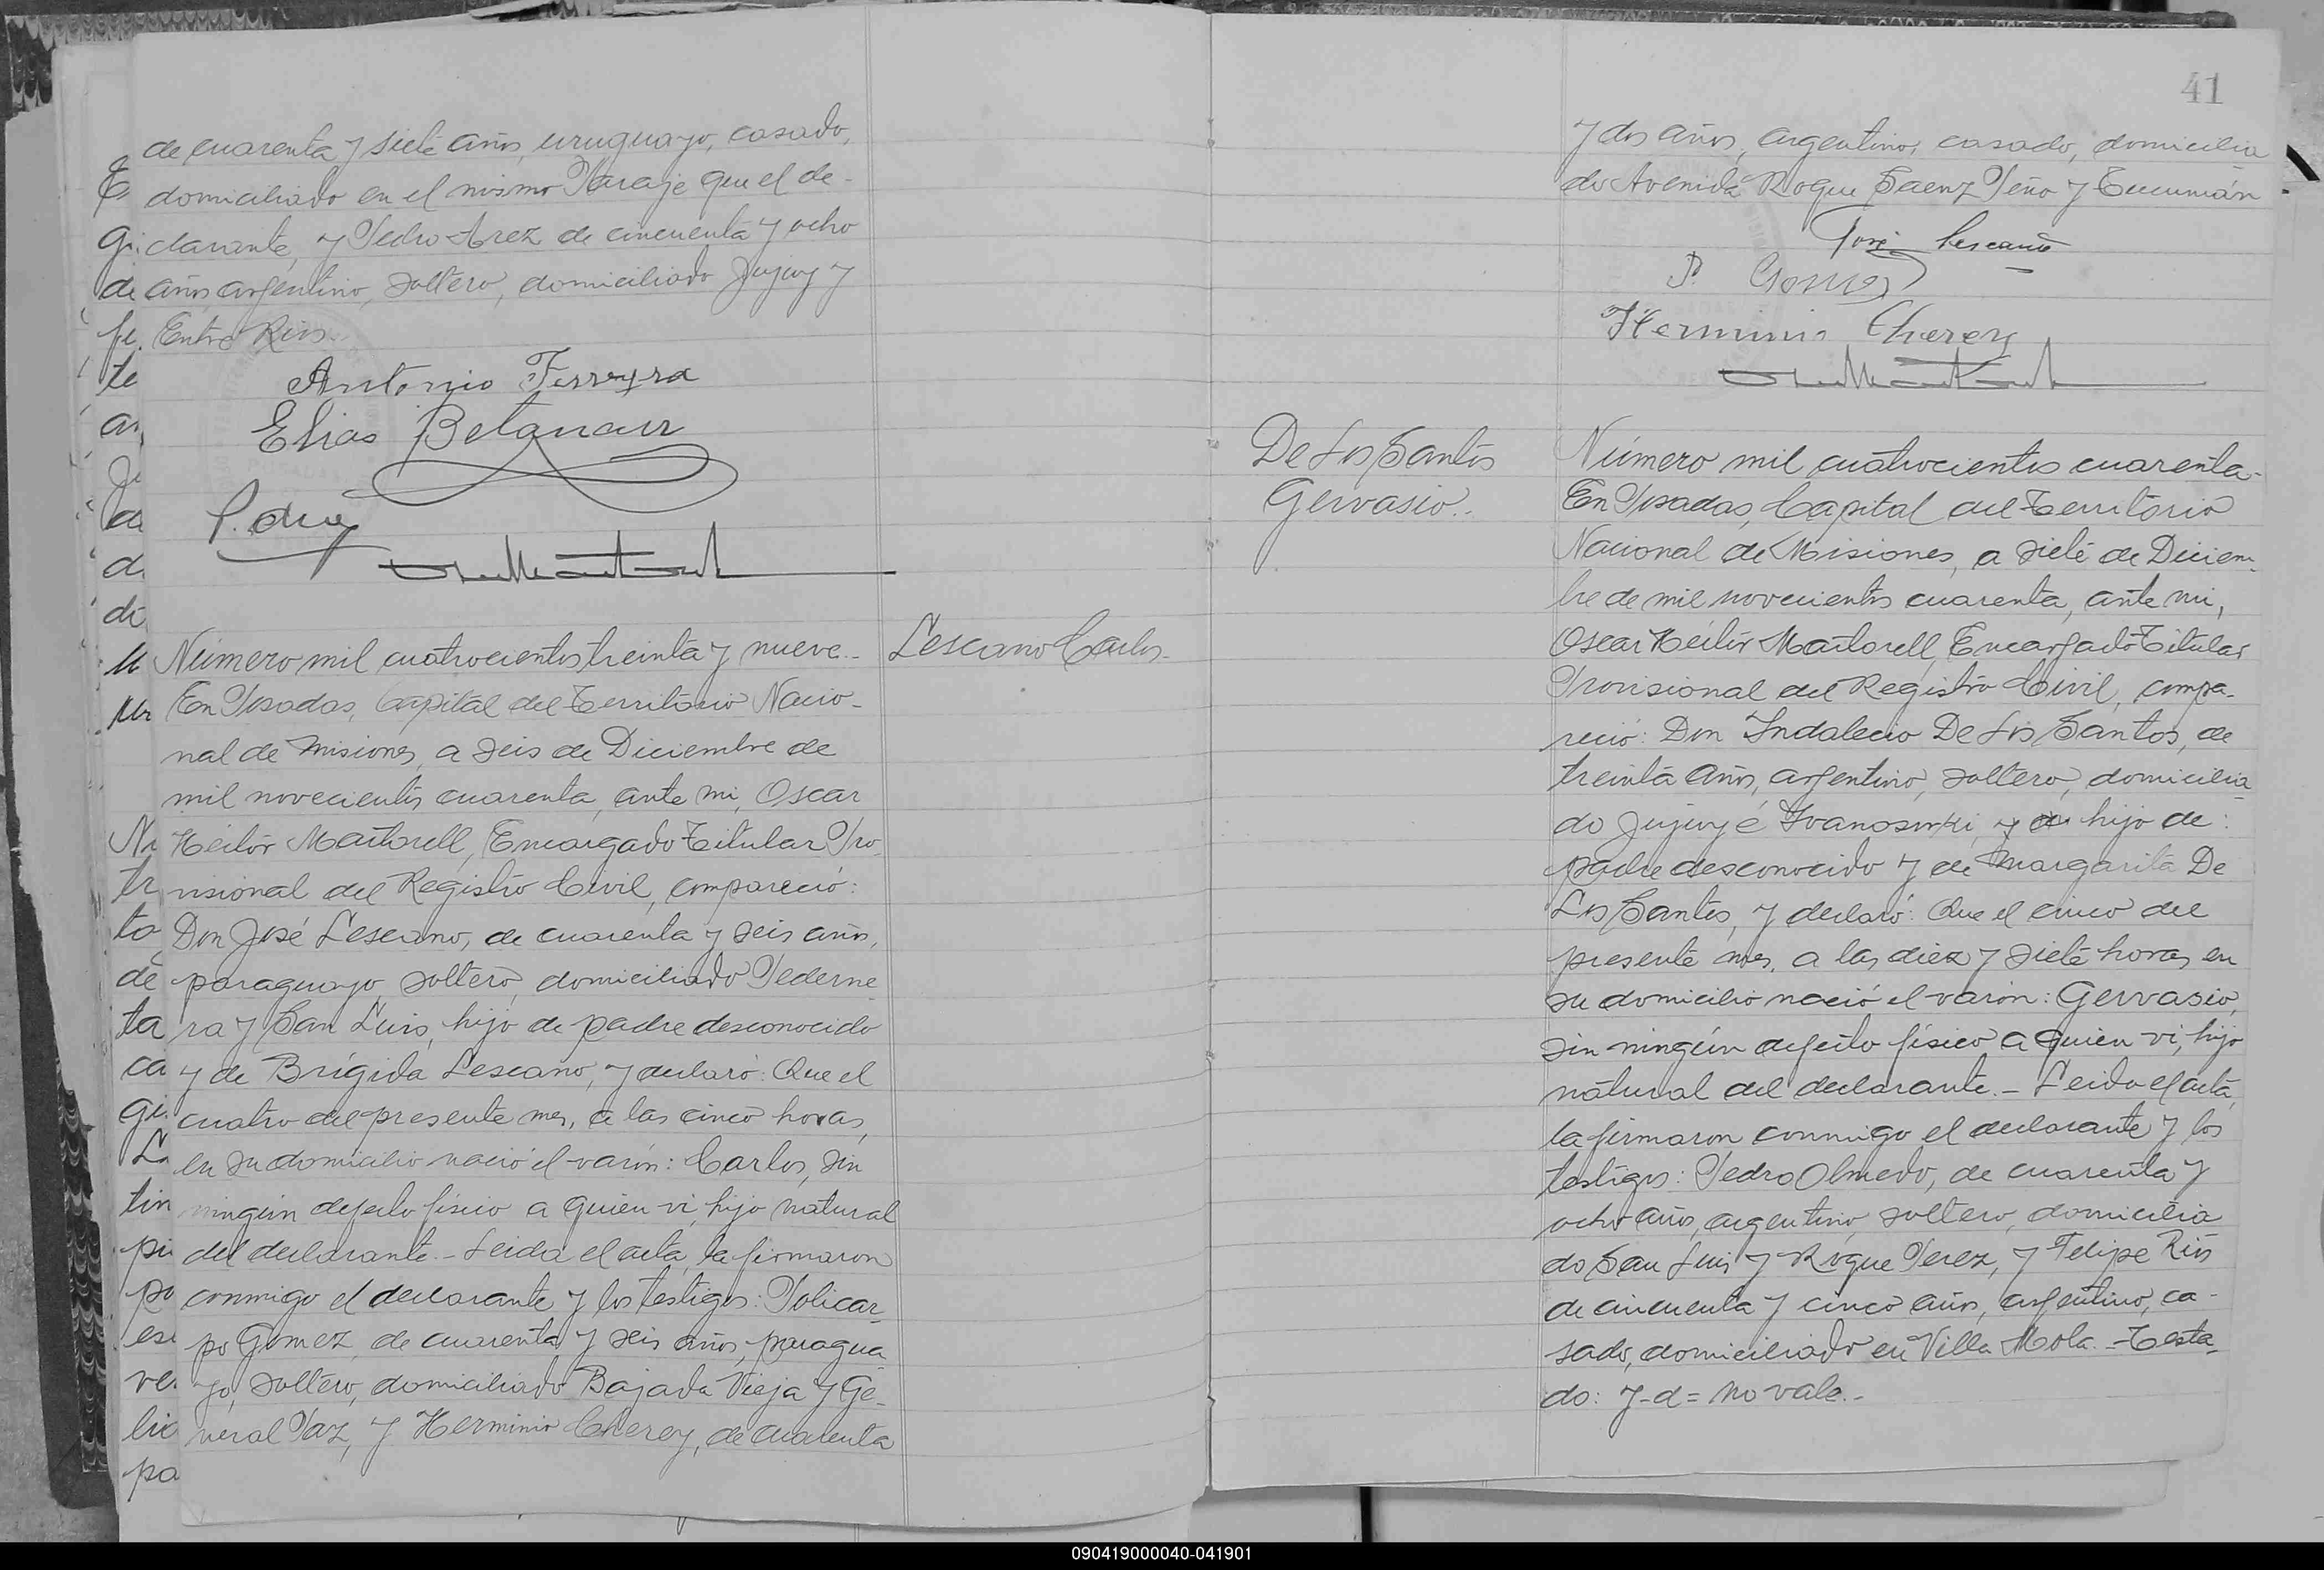 de cuarenta y siete años, uruguayo, casado,
domiciliado en el mismo Paraje que el de-
clarante, y Pedro Arez de cincuenta y ocho
años, argentino, soltero, domiciliado Jujuy y
Entre Rios.
Antonio Ferreyra
Elias Betancur
Número mil cuatrocientos treinta y nueve.-
Lescano Carlos.-
En Posadas, Capital del Territorio Nacio-
nal de Misiones, a seis de Diciembre de
mil novecientos cuarenta, ante mi, Oscar
Héctor Martorell, Encargado Titular Pro-
visional del Registro Civil, compareció:
Don José Lescano, de cuarenta y seis años,
paraguayo, soltero, domiciliado Pederne
ra y San Luis, hijo de padre desconocido
y de Brígida Lescano, y declaró: Que el
cuatro del presente mes, a las cinco horas,
en su domicilio nació el varón: Carlos, sin
ningún defecto físico a quien vi, hijo natural
del declarante.- Leida el acta, la firmaron
conmigo el declarante y los testigos: Policar-
po Gomez, de cuarenta y seis años, paragua
yo, soltero, domiciliado Bajada Vieja y Ge-
neral Paz, y Herminio Cherey, de cuarenta
41
y dos años, argentino, casado, domicilia
do Avenida Roque Saenz Peña y Tucumán
José Lescano
P. Gomez
Herminio Cherey
De Los Santos
Gervasio.-
Número mil cuatrocientos cuarenta-
En Posadas, Capital del Territorio
Nacional de Misiones, a siete de Diciem-
bre de mil novecientos cuarenta, ante mi,
Oscar Héctor Martorell, Encargado Titular
Provisional del Registro Civil, compa-
reció: Don Indalecio De Los Santos, de
treinta años, argentino, soltero, domicilia
do Jujuy é Ivanoswki, y d hijo de:
padre desconocido y de Margarita De
Los Santos, y declaró: Que el cinco del
presente mes, a las diez y siete horas en
su domicilio nació el varón: Gervasio,
sin ningún defecto físico a quien vi, hijo
natural del declarante.- Leido el acta,
la firmaron conmigo el declarante y los
testigos: Pedro Olmedo, de cuarenta y
ocho años, argentino, soltero, domicilia
do San Luis y Roque Perez, y Felipe Rios
de cincuenta y cinco años, argentino, ca-
sado, domiciliado en Villa Mola.- Testa-
do: y-d= no vale.-
090419000040-041901